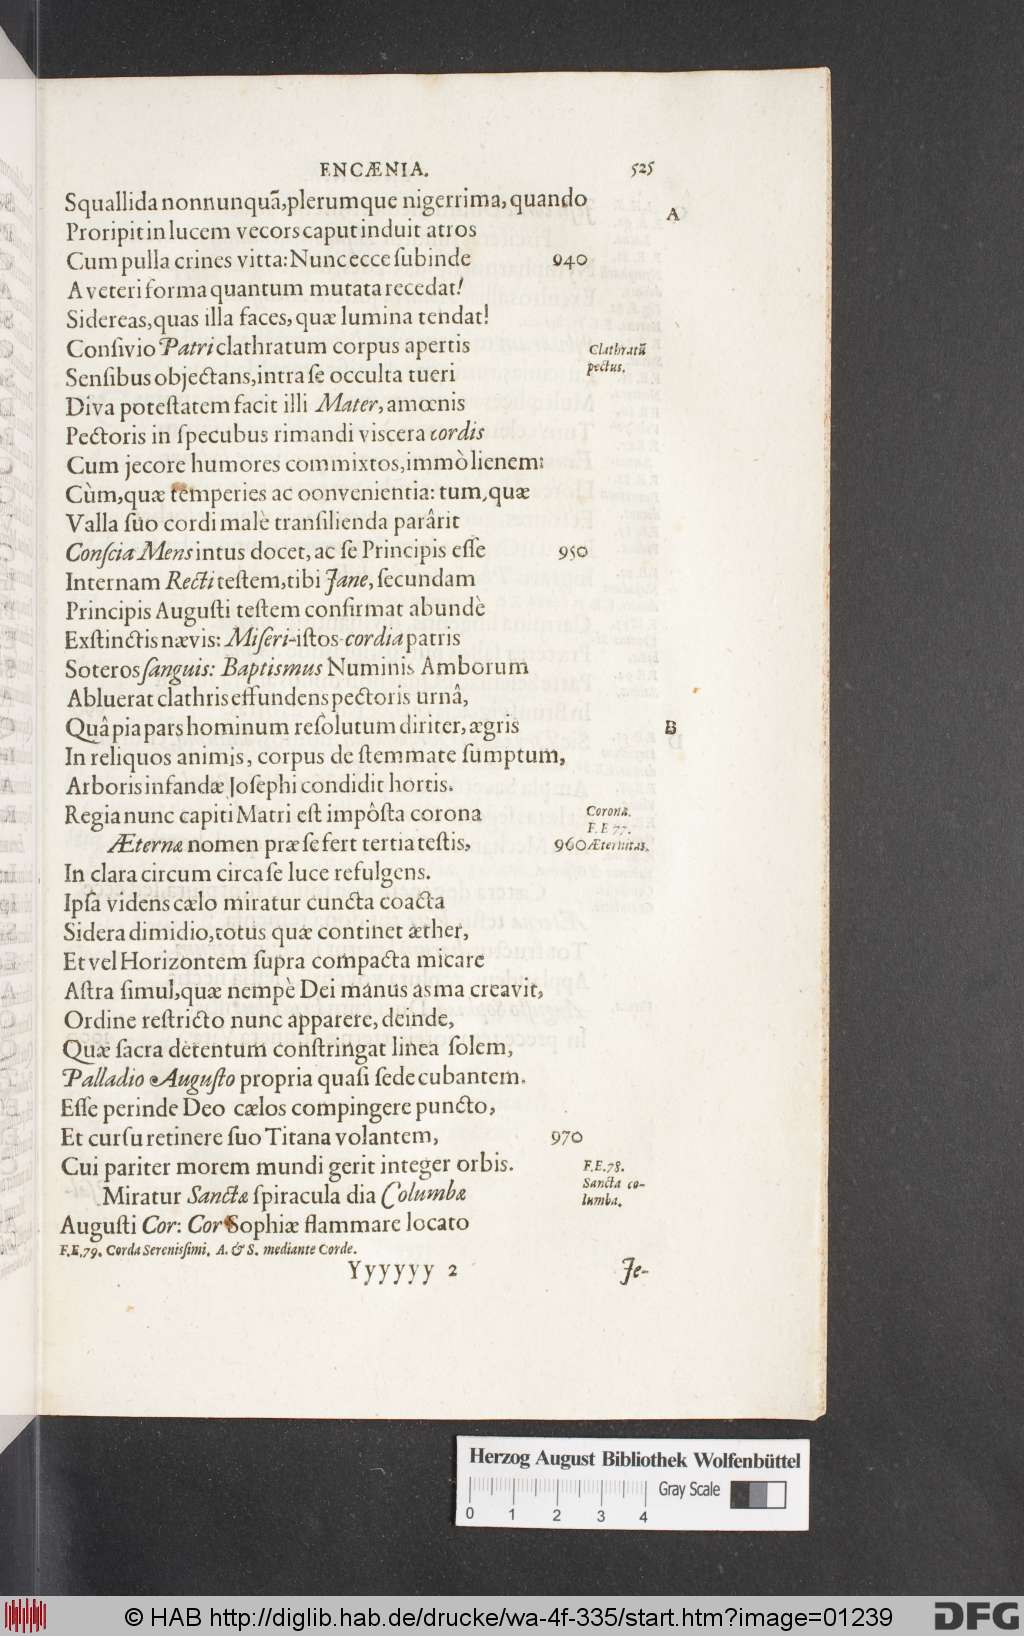 ENCÆNIA. 525
Squallida nonnunquã, plerumque nigerrima, quando
A
Proripit in lucem vecors caput induit atros
Cum pulla crines vitta: Nunc ecce ſubinde 940
A veteri forma quantum mutata recedat!
Sidereas, quas illa faces, quæ lumina tendat!
Conſivio Patri clathratum corpus apertis Clathratũ
Senſibus objectans, intra ſe occulta tueri pectus.
Diva poteſtatem facit illi Mater, amœnis
Pectoris in ſpecubus rimandi viscera cordis
Cum jecore humores commixtos, immò lienem:
Cùm, quæ temperies ac oonvenientia: tum, quæ
Valla ſuo cordi malè tranſilienda parârit
Conſcia Mens intus docet, ac ſe Principis eſſe 950
Internam Recti teſtem, tibi Jane, ſecundam
Principis Auguſti teſtem confirmat abundè
Exſtinctis nævis: Miſeri-iſtos-cordia patris
Soteros ſanguis: Baptismus Numinis Amborum
Abluerat clathris effundens pectoris urnâ,
Quâ pia pars hominum reſolutum diriter, ægris B
In reliquos animis, corpus de ſtemmate ſumptum,
Arboris infandæ Joſephi condidit hortis.
Regia nunc capiti Matri eſt impôſta corona Corona.
F. E 77.
Æternæ nomen præ ſe fert tertia teſtis, 960 Æternitas.
In clara circum circa ſe luce refulgens.
Ipſa videns cælo miratur cuncta coacta
Sidera dimidio, totus quæ continet æther,
Et vel Horizontem ſupra compacta micare
Aſtra ſimul, quæ nempè Dei manus asma creavit,
Ordine reſtricto nunc apparere, deinde,
Quæ ſacra détentum conſtringat linea ſolem,
Palladio Auguſto propria quaſi ſede cubantem.
Eſſe perinde Deo cælos compingere puncto,
Et curſu retinere ſuo Titana volantem, 970
Cui pariter morem mundi gerit integer orbis. F.E.78.
Sancta co-
Miratur Sanctæ ſpiracula dia Columbæ lumba.
Auguſti Cor: Cor Sophiæ flammare locato
F.E.79. Corda Sereniſſimi, A. & S. mediante Corde.
Yyyyyy 2 Je-
Herzog August Bibliothek Wolfenbüttel
Gray Scale
0 1 2 3 4
© HAB http://diglib.hab.de/drucke/wa-4f-335/start.htm?image=01239
DFG